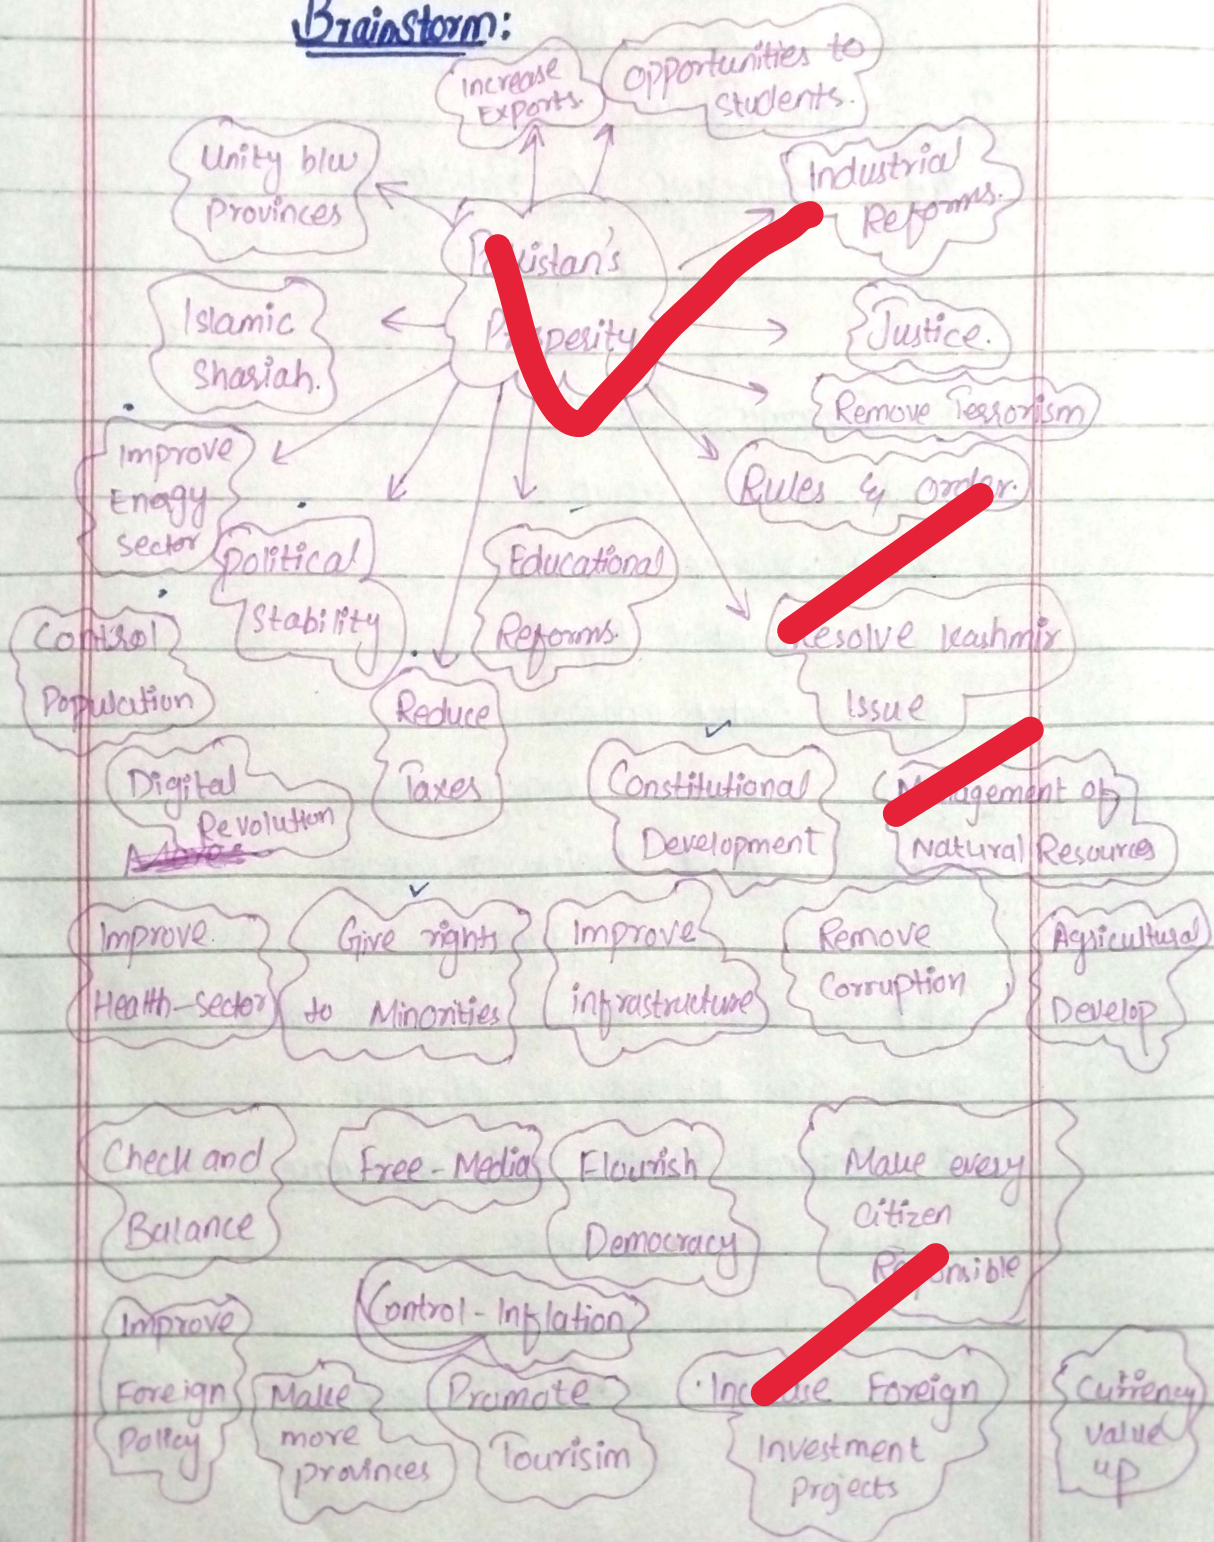 Brainstorm:
Increase
Exports.
Opportunities to
students.
Unity b/w
provinces
Industrial
Reforms.
Pakistan's
Prosperity
Islamic
Shariah.
Justice.
Remove Terrorism
Rules & order.
Improve
Enagy
sector
Political
Stability
Educational
Reforms.
Resolve Kashmir
Issue
Control
Population
Reduce
Taxes
Digital
Revolution
Constitutional
Development
Management of
Natural Resources
Improve
Health-sector
Give rights
to Minorities
Improve
infrastructure
Remove
Corruption
Agricultural
Develop
Check and
Balance
Free-Media
Flourish
Democracy
Make every
Citizen
Responsible
Control-Inflation
Improve
Foreign
Policy
Make
more
provinces
Promote
Tourisim
Increase Foreign
Investment
Projects
Currency
value
up